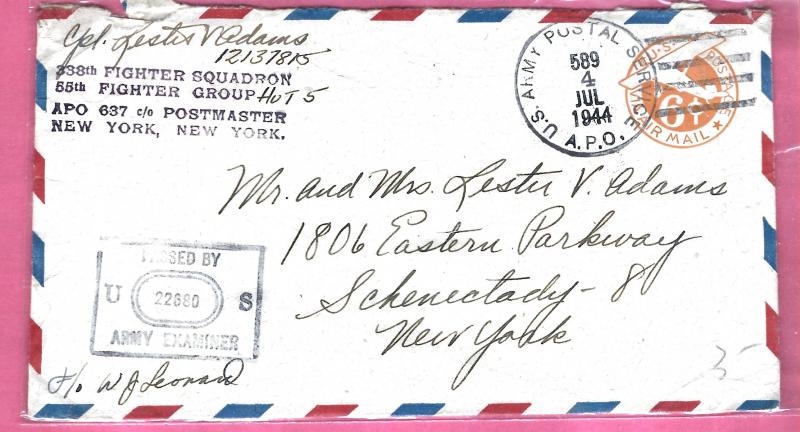 Cpl. Lester V Adams
12137815
338th FIGHTER SQUADRON
55th FIGHTER GROUP HUT 5
APO 637 c/o POSTMASTER
NEW YORK, NEW YORK.
U.S. ARMY POSTAL SERVICE
589
4
JUL
1944
A.P.O.
U.S. POSTAGE
6¢
VIA AIR MAIL
Mr. and Mrs. Lester V. Adams
1806 Eastern Parkway
Schenectady - 8
New York
PASSED BY
U 22680 S
ARMY EXAMINER
W J Leonard